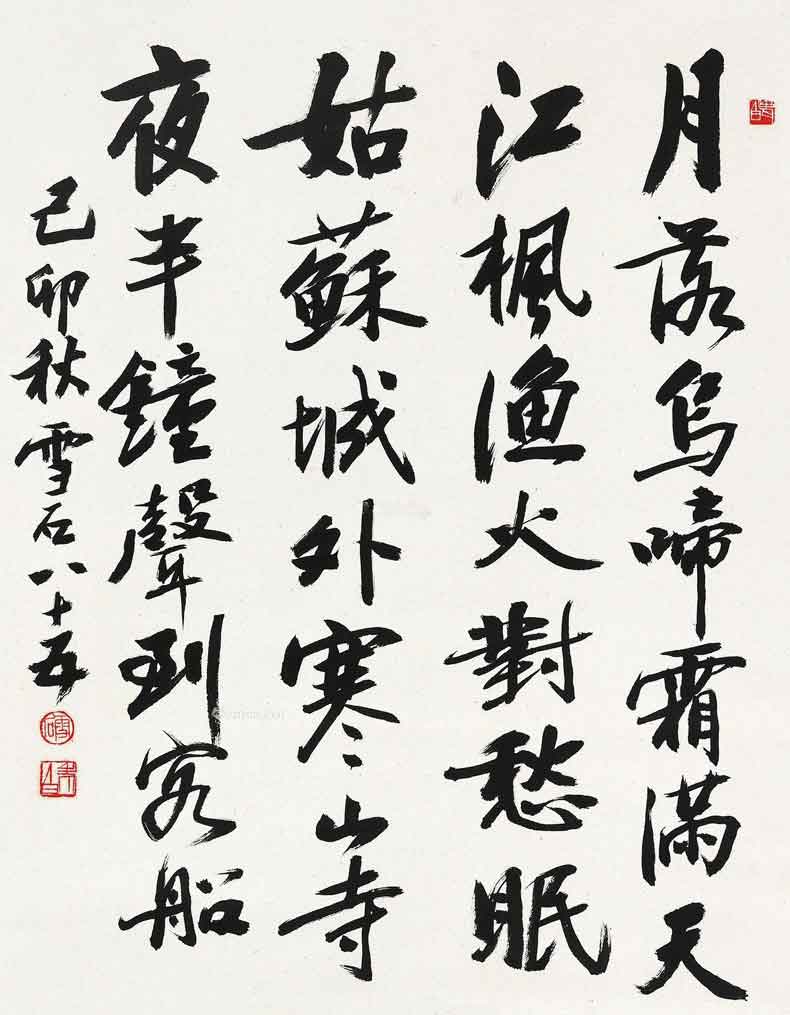 月落烏啼霜滿天
江楓渔火對愁眠
姑蘇城外寒山寺
夜半鐘聲到客船
己卯秋雪石八十五